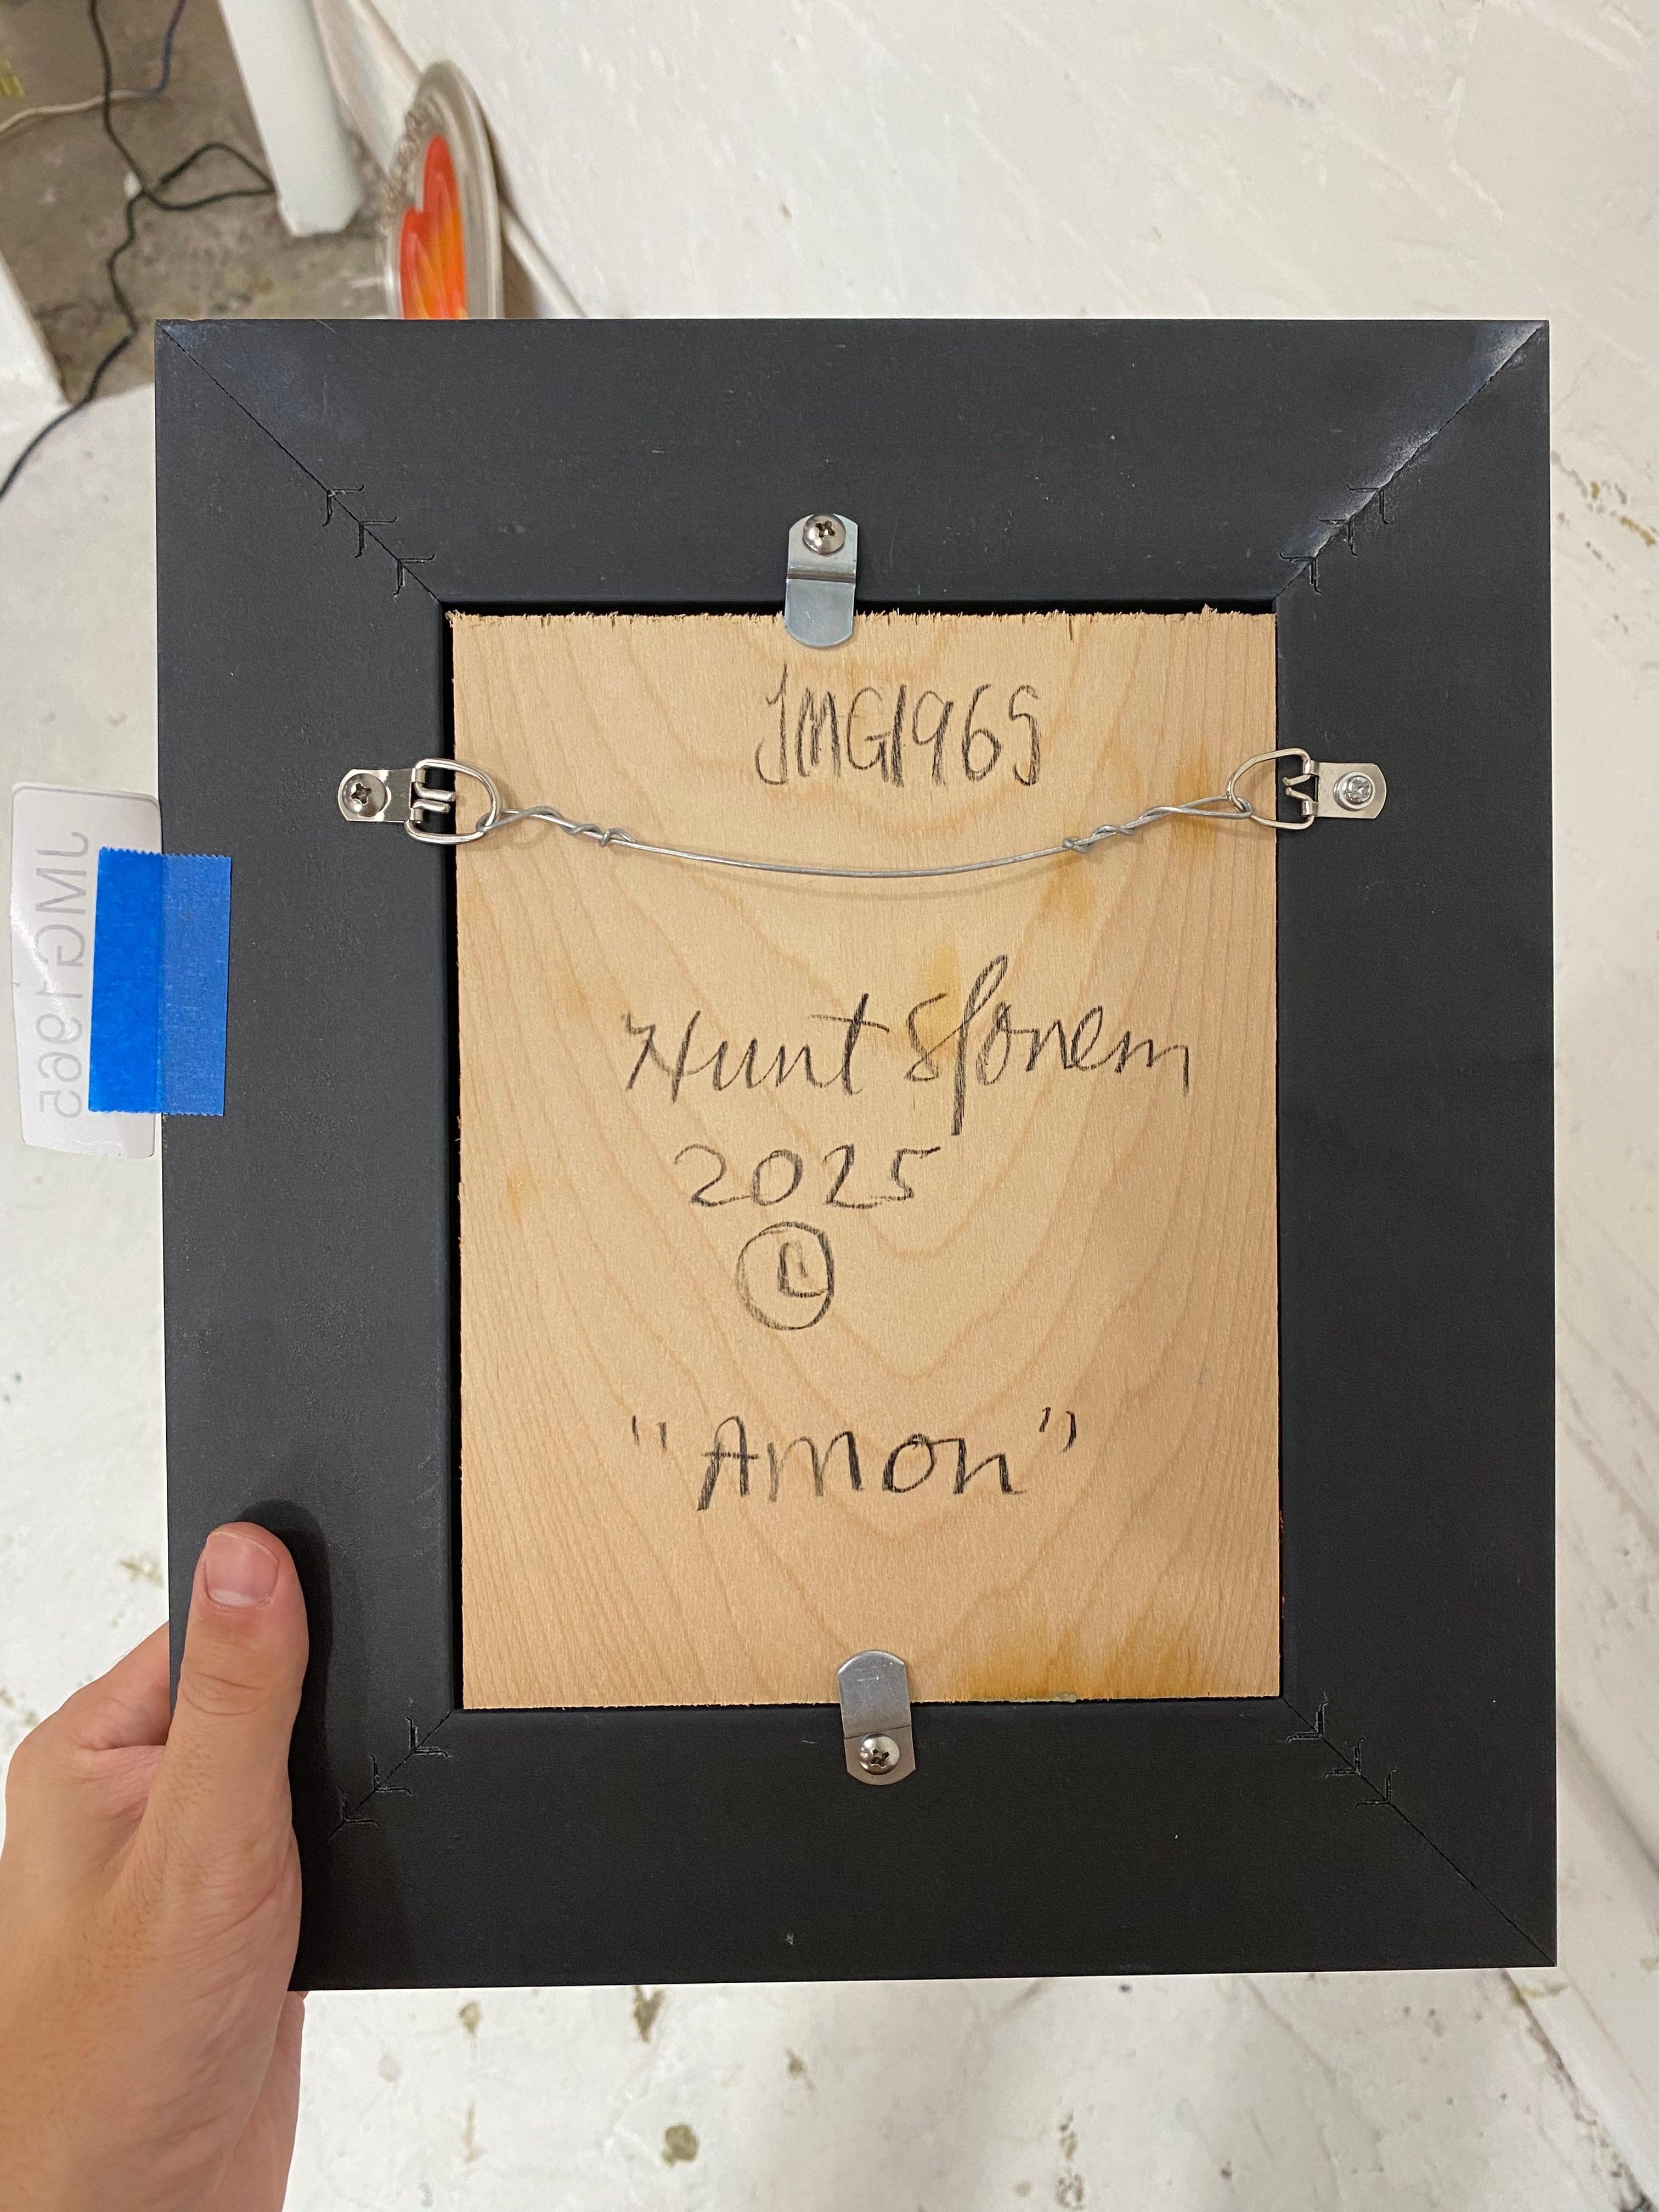 JMG1965
JMG1965
Hunt Slonem
2025
©
"Amon"